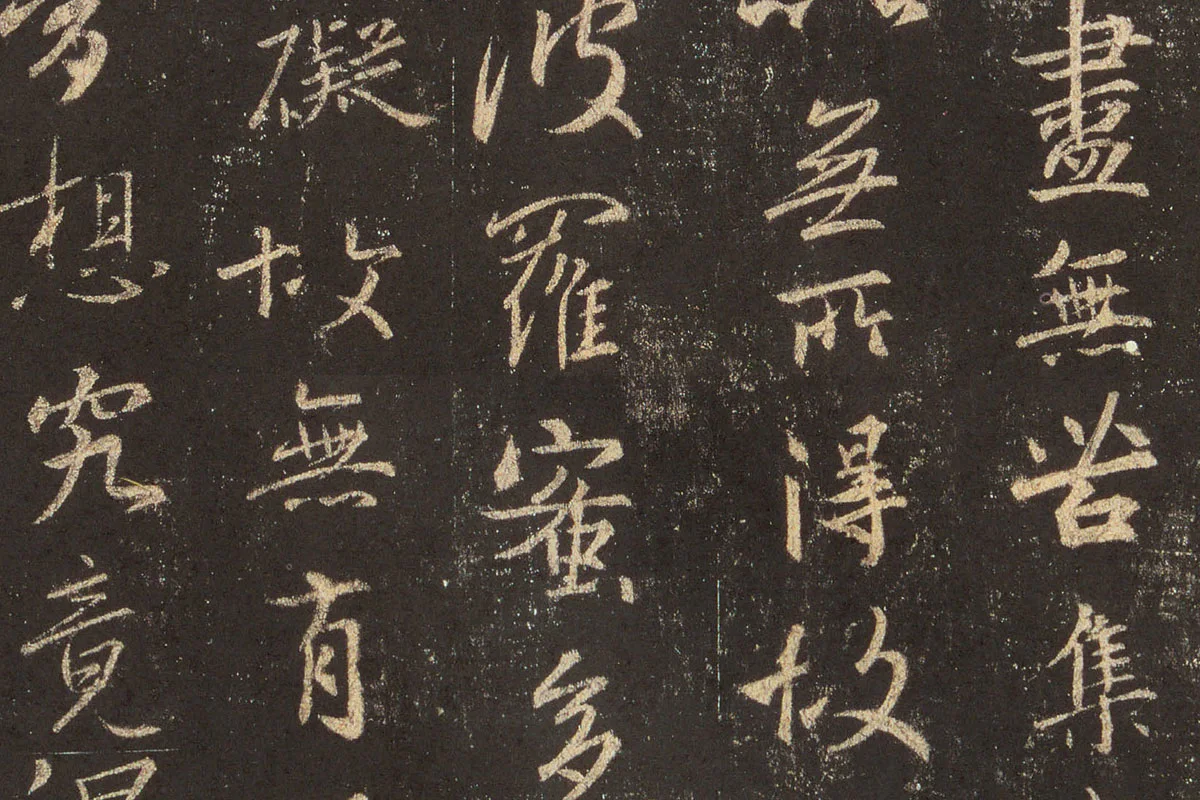 盡無苦集
無所得故
波羅蜜多
礙故無有
夢想究竟涅